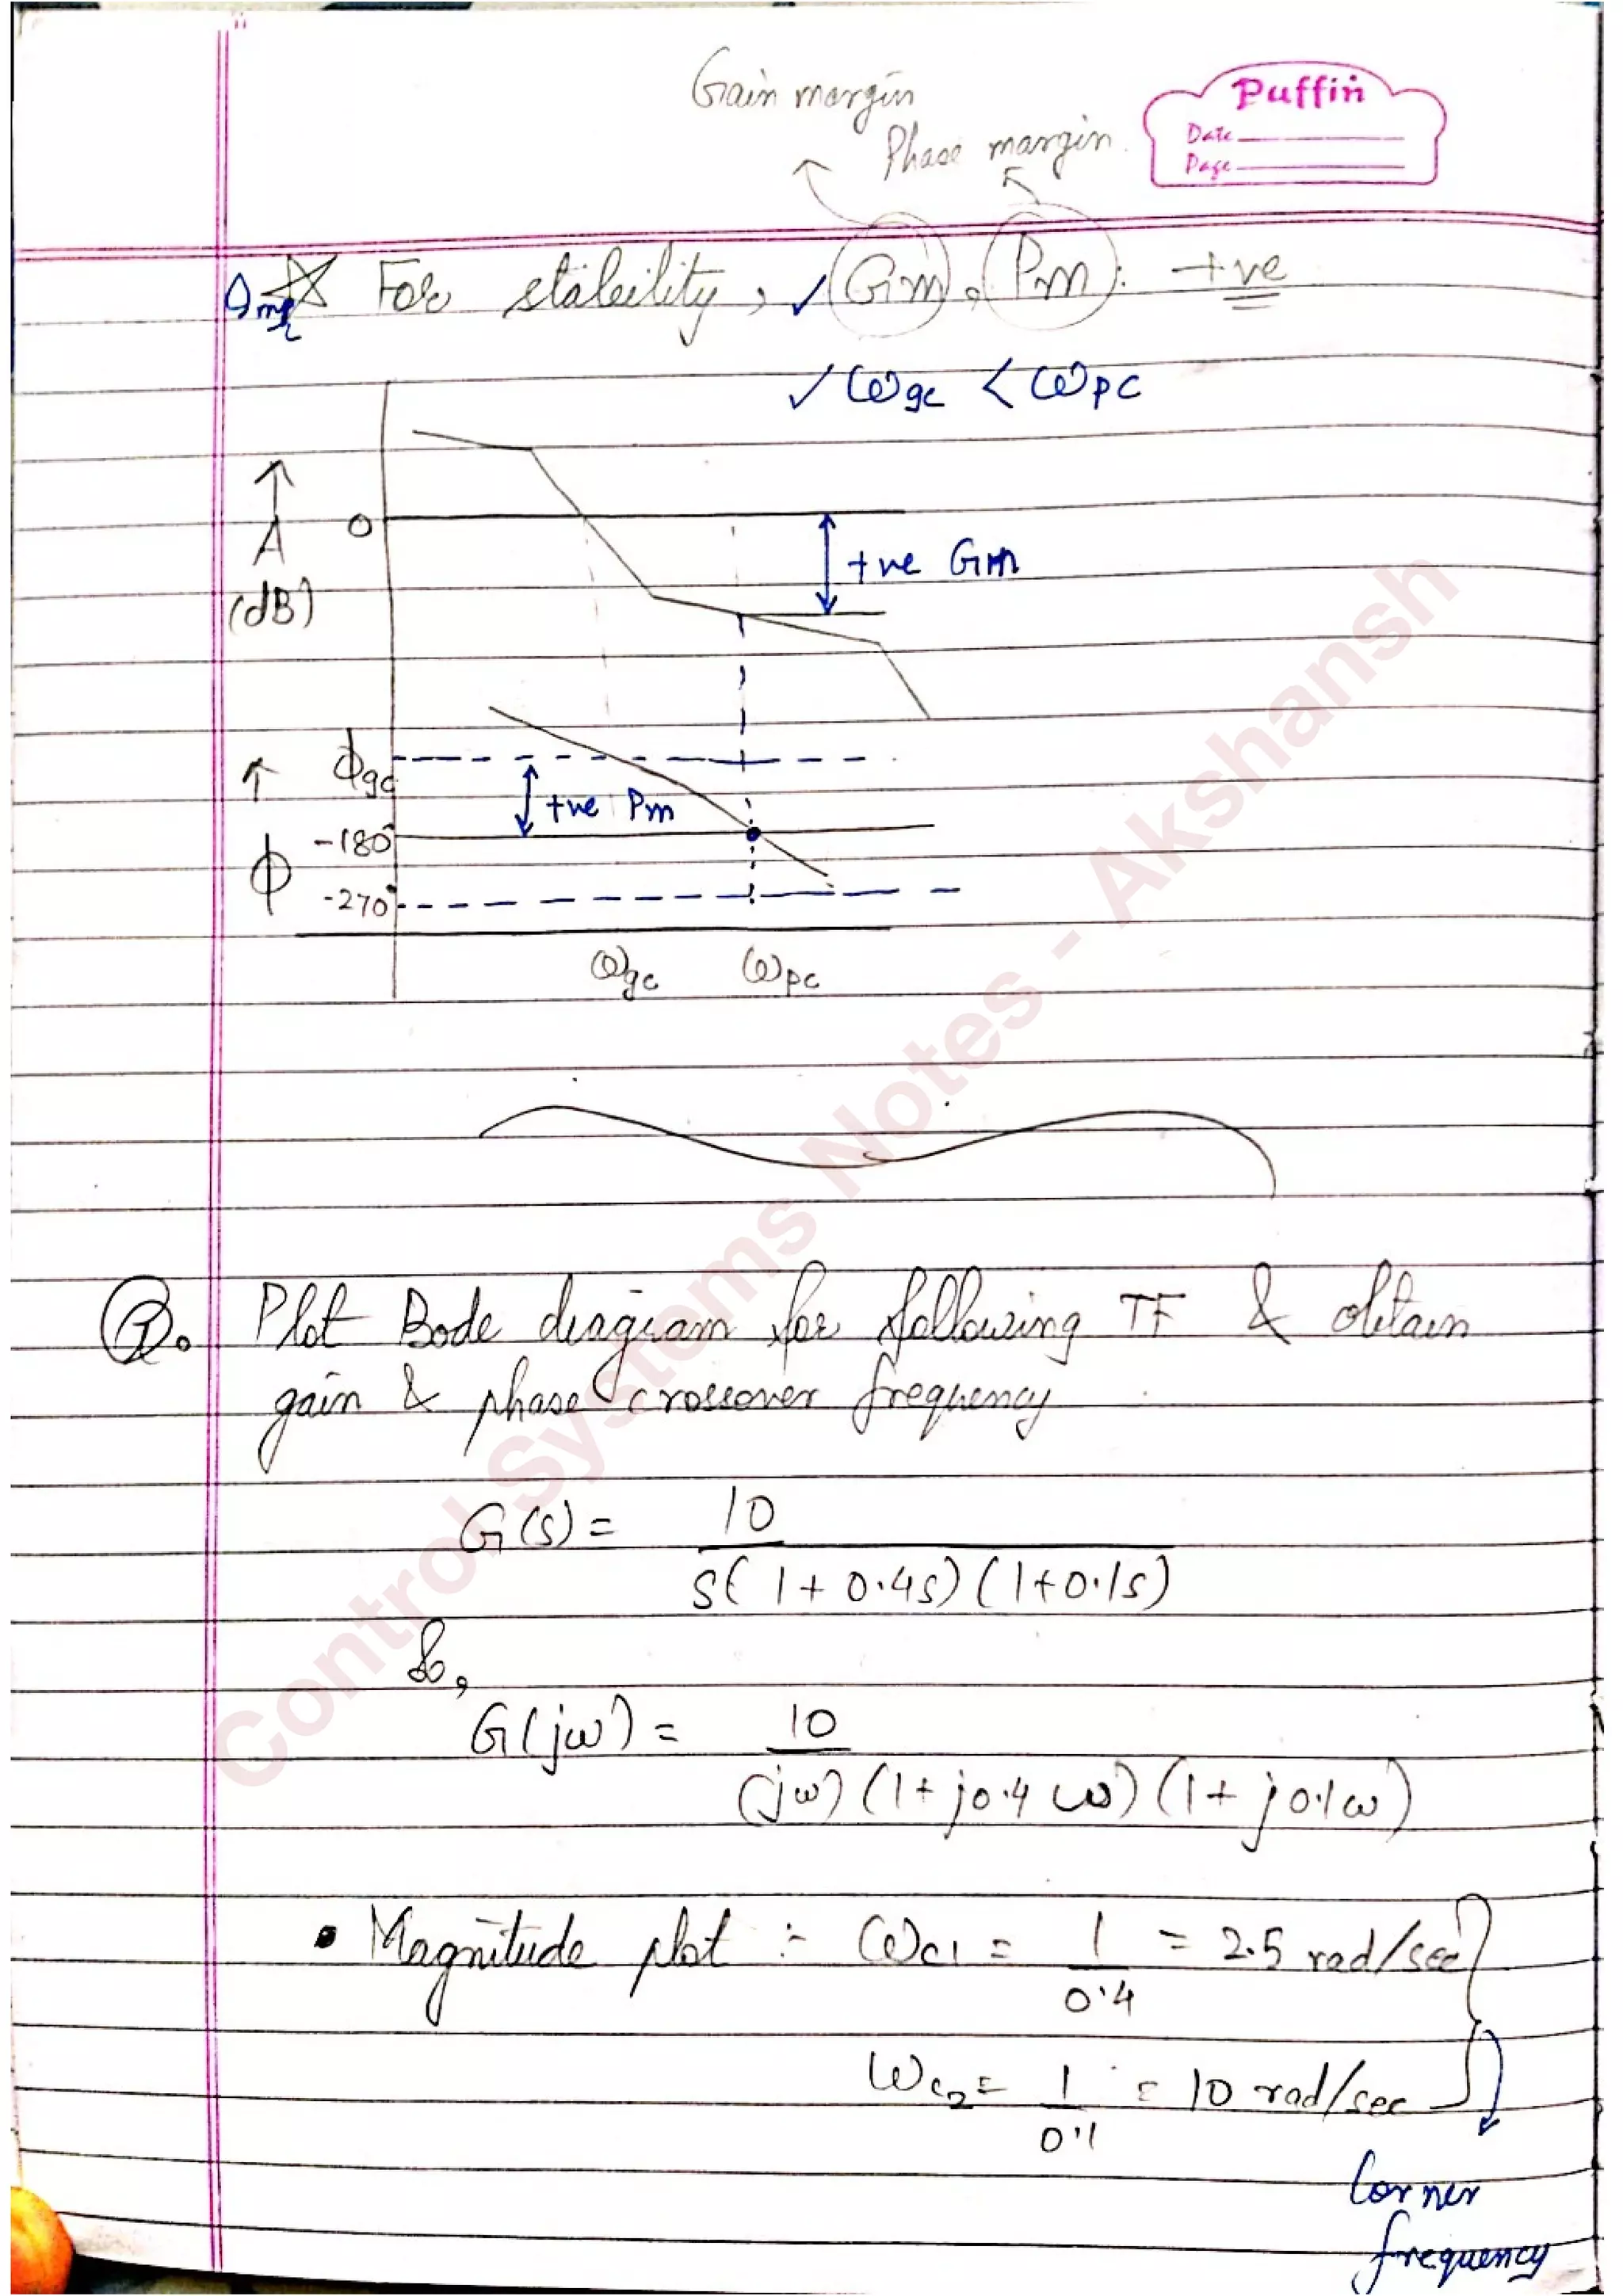 Gain margin
Phase margin.
Puffin
Date
Page
Imp ☆ For stability, ✓ Gm, Pm : +ve
✓ ωgc < ωpc
↑
A
(dB)
0
+ve Gm
↑
ϕ
ϕgc
+ve Pm
-180°
-270°
ωgc ωpc
Q. Plot Bode diagram for following TF & obtain
gain & phase crossover frequency
G(s) = 10
s(1+0.4s)(1+0.1s)
So,
G(jω) = 10
(jω)(1+j0.4ω)(1+j0.1ω)
• Magnitude plot :- ωc1 = 1 = 2.5 rad/sec
0.4
ωc2 = 1 = 10 rad/sec
0.1
Corner
frequency
Control Systems Notes - Akshansh